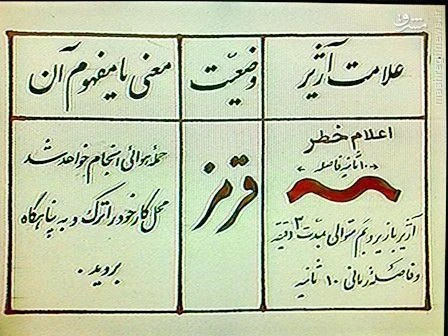 علامت آژیر
وضعیّت
معنی یا مفهوم آن
اعلام خطر
۱۰ ثانیه فاصله
آژیر با زیر و بم متوالی بمدت ۳ دقیقه
و فاصلهٔ زمانی ۱۰ ثانیه
قرمز
حمله هوائی انجام خواهد شد
محل کار خود را ترک و به پناهگاه
بروید.
مشرق